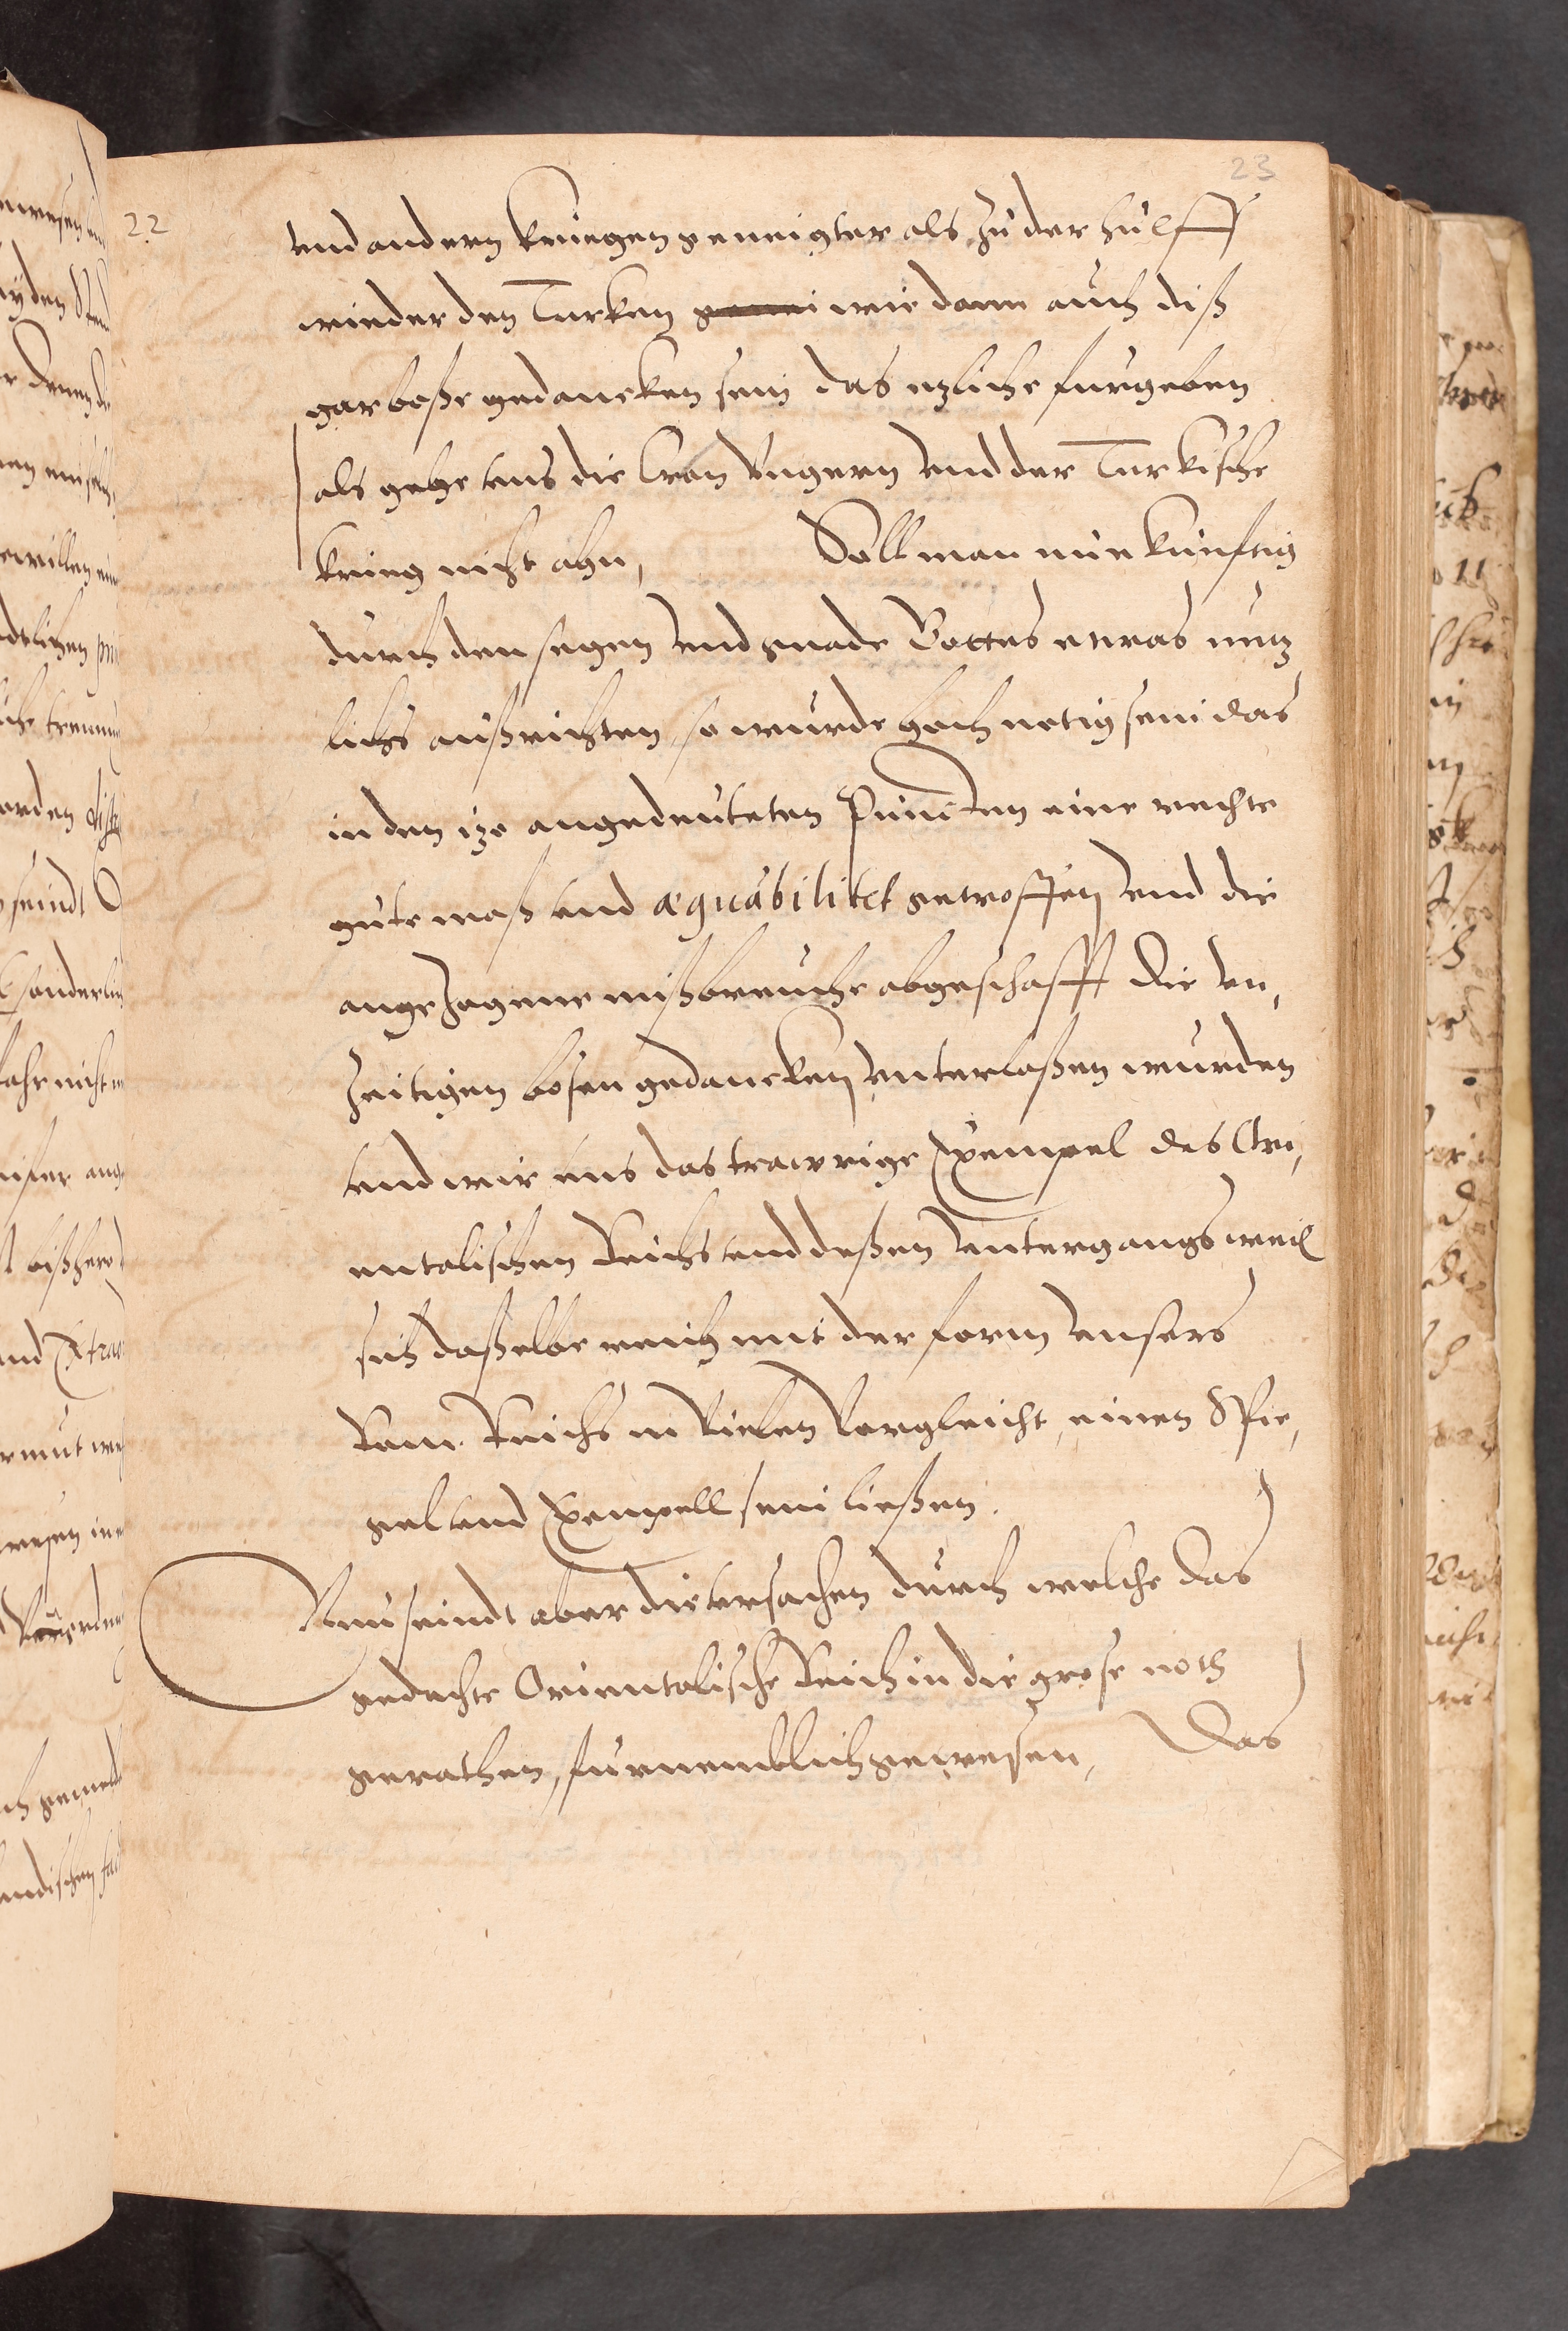 23
22
vnd andern kriegen geneigter als zu der hülff
wieder den Turken genei wie dann auch diß
gar boße gedancken sein das ezliche furgeben
als gehe vns die Cron Vngern vnd der Turkische
krieg nicht ahn, Soll man nün künftig
durch den segen vnd gnade Gottes etwas nutz
lichs außrichten, so wurde hoch notig sein das
in den ize angedeuteten Puncten eine rechte
gute maß vnd æquabilitet getroffen vnd die
angezogene mißbreuche abgeschafft die vn,
zeitigen bösen gedancken vnterlaßen wurden
vnd wir uns das trawrige Exempel des Ori,
entalischen Reichs vnd deßen vntergangs weil
sich daßelbe reich mit der form vnsers
Rom. Reichs in vielen vergleicht, einen Spie,
gel vnd Exempell sein ließen.
Nun seindt aber die vrsachen durch welche das
gedachte Orientalische Reich in die grose noth
gerathen, furnemblich gewesen, Das